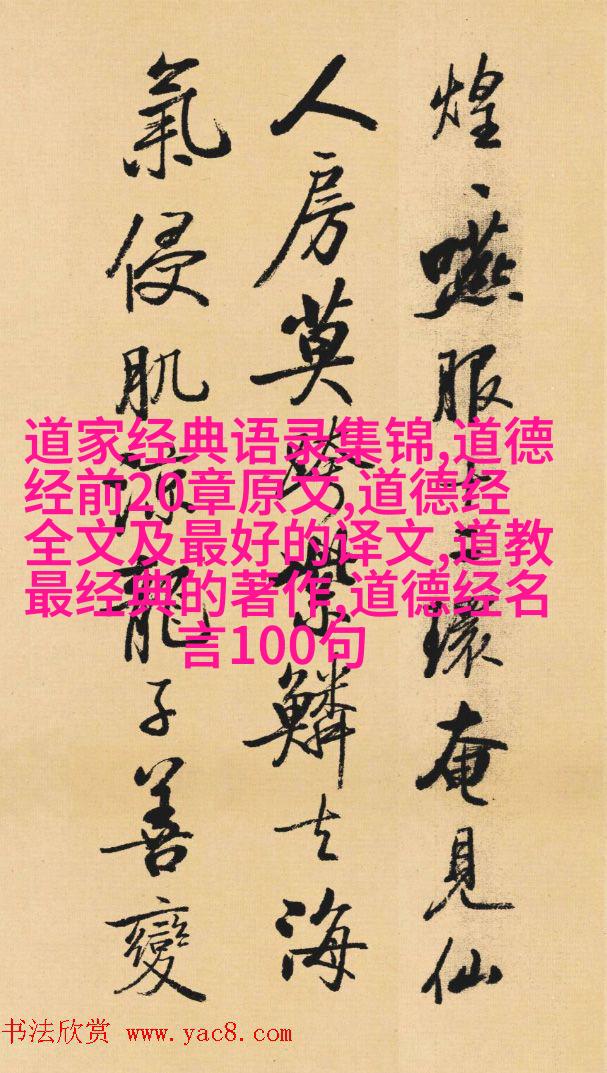 煌、嚥服十二環奄見仙
人房莫跨紫鱗去海
氣侵肌涼龍子善變
道家经典语录集锦,道德
经前20章原文,道德经
全文及最好的译文,道教
最经典的著作,道德经名
言100句
书法欣赏 www.yac8.com